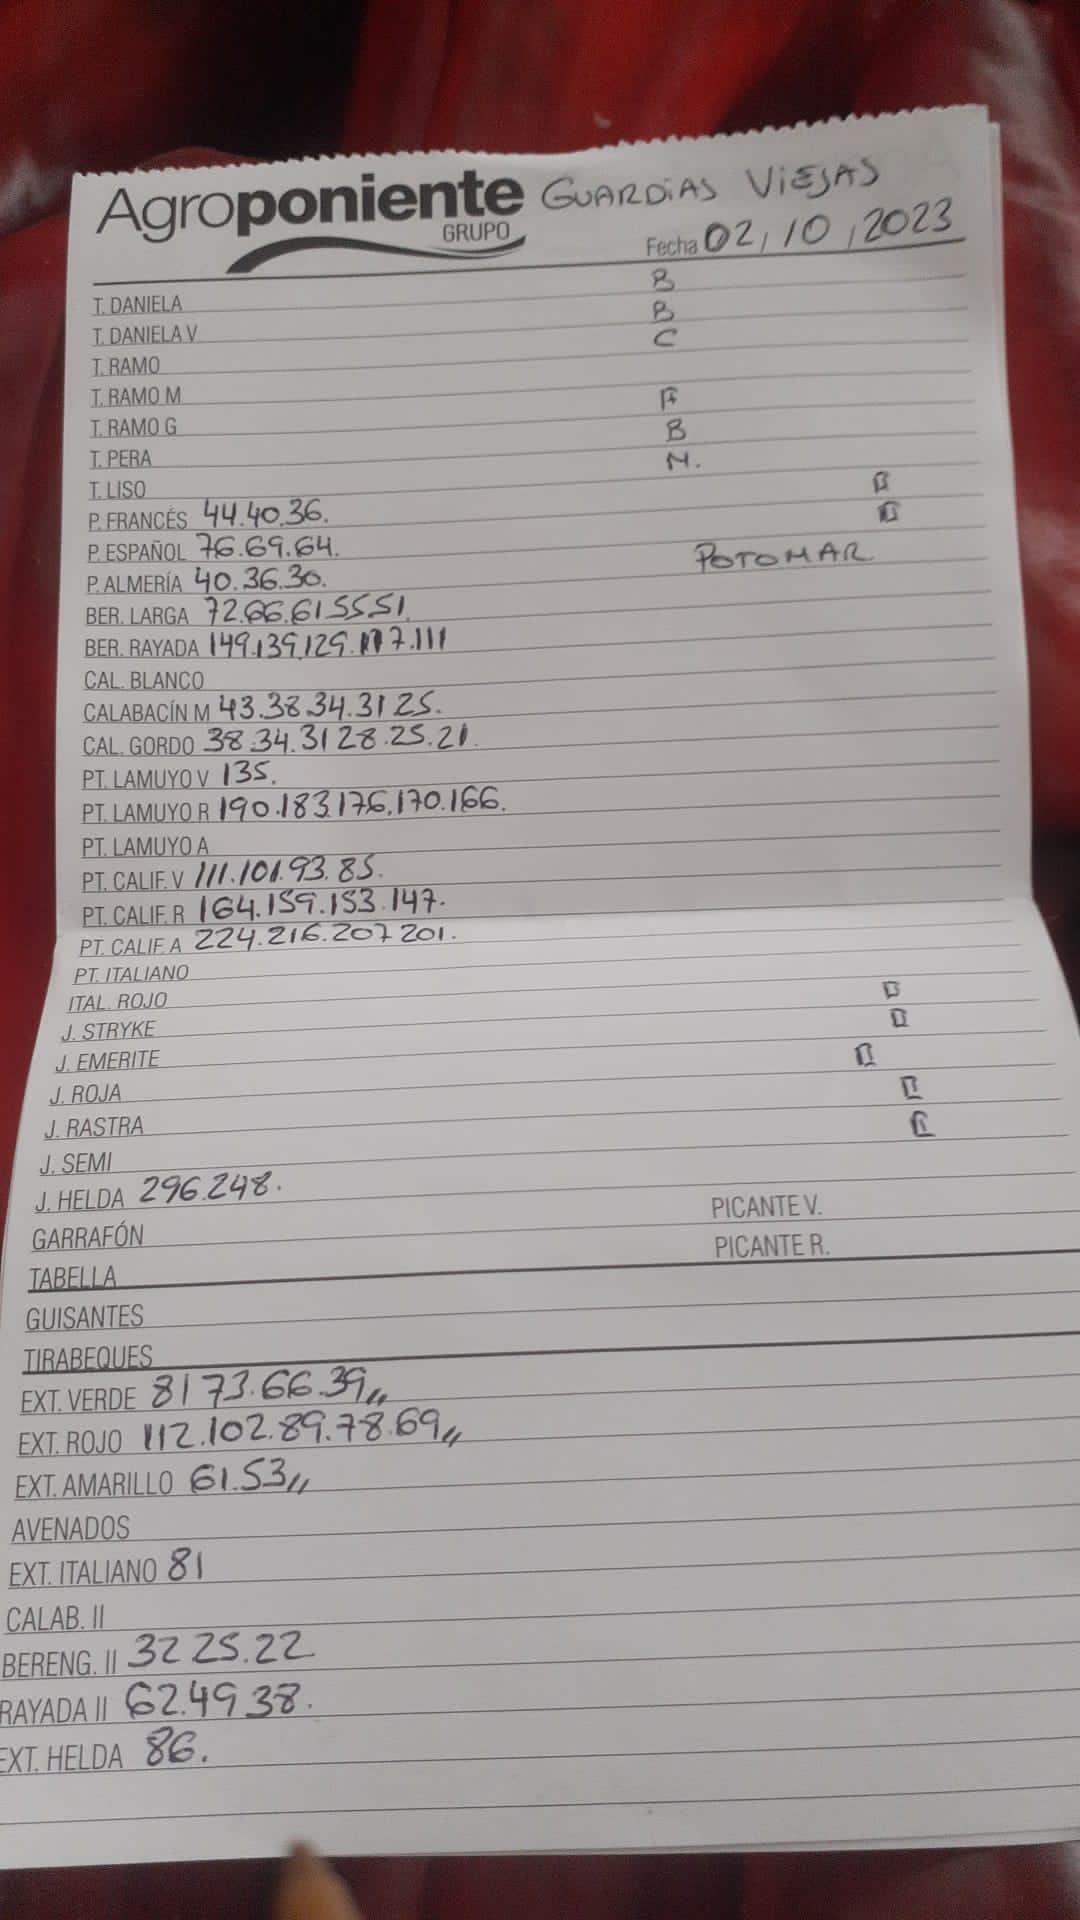 Agroponiente GUARDIAS VIEJAS
GRUPO Fecha 02/10/2023
T. DANIELA B
T. DANIELA V B
T. RAMO C
T. RAMO M
T. RAMO G
T. PERA B
T. LISO M.
P. FRANCÉS 44.40.36.
P. ESPAÑOL 76.69.64.
P. ALMERÍA 40.36.30. POTOMAR
BER. LARGA 72.66.61 55 51.
BER. RAYADA 149.139.129.117.111
CAL. BLANCO
CALABACÍN M 43.38.34.31 25.
CAL. GORDO 38.34.31 28.25.21.
PT. LAMUYO V 135.
PT. LAMUYO R 190.183.176.170.166.
PT. LAMUYO A
PT. CALIF. V 111.101.93.85.
PT. CALIF. R 164.159.153.147.
PT. CALIF. A 224.216.207 201.
PT. ITALIANO
ITAL. ROJO
J. STRYKE
J. EMERITE
J. ROJA
J. RASTRA
J. SEMI
J. HELDA 296.248.
GARRAFÓN PICANTE V.
TABELLA PICANTE R.
GUISANTES
TIRABEQUES
EXT. VERDE 81 73.66.39,,
EXT. ROJO 112.102.89.78.69,,
EXT. AMARILLO 61.53,,
AVENADOS
EXT. ITALIANO 81
CALAB. II
BERENG. II 32 25.22
RAYADA II 62.49 38.
EXT. HELDA 86.